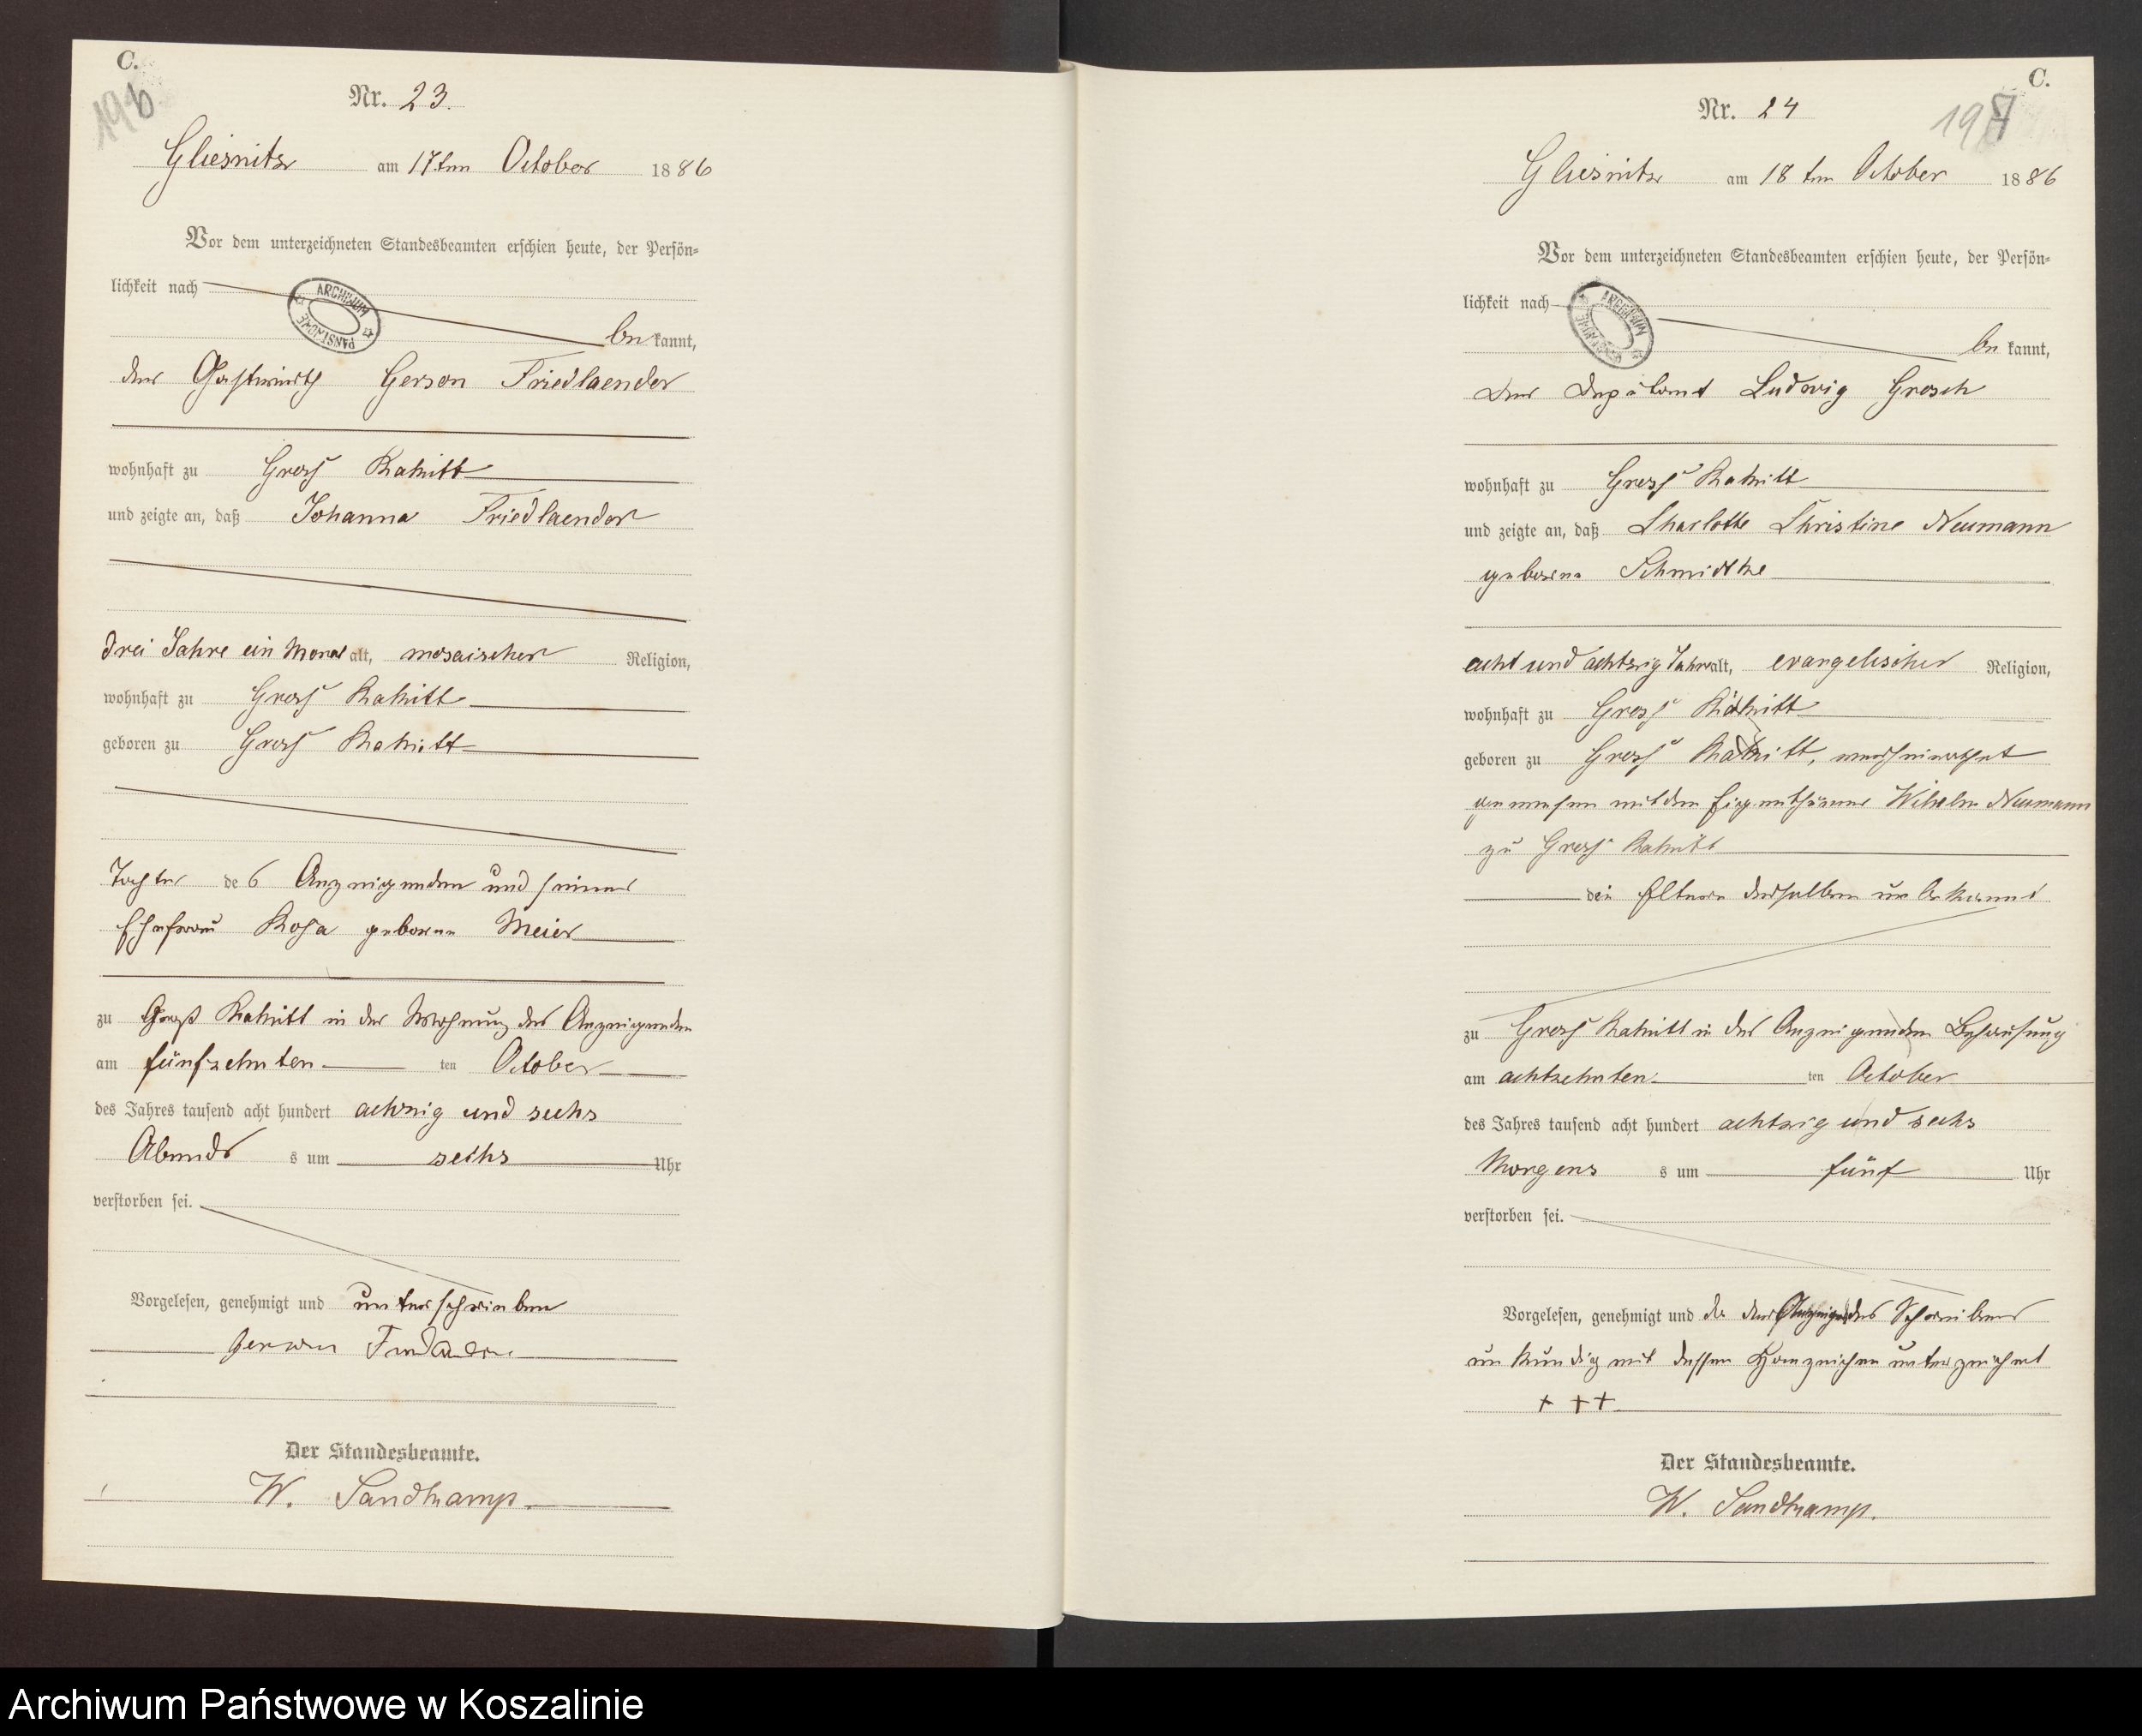 C.
196
Nr. 23.
Gliesnitz am 17ten October 1886
Vor dem unterzeichneten Standesbeamten erschien heute, der Persön-
lichkeit nach
ARCHIWUM PAŃSTWOWE
be kannt,
der Gastwirth Gerson Friedlaender
wohnhaft zu Gross Rakitt
und zeigte an, daß Johanna Friedlaender
drei Jahre ein Monat alt, mosaischer Religion,
wohnhaft zu Gross Rakitt
geboren zu Gross Rakitt
Tochter des Anzeigenden und seiner
Ehefrau Rosa geborene Meier
zu Groß Rakitt in der Wohnung des Anzeigenden
am fünfzehnten ten October
des Jahres tausend acht hundert achzig und sechs
Abends s um sechs Uhr
verstorben sei.
Vorgelesen, genehmigt und unterschrieben
Gerson
Der Standesbeamte.
W. Sandkamp.
C.
197
Nr. 24
Gliesnitz am 18ten October 1886
Vor dem unterzeichneten Standesbeamten erschien heute, der Persön-
lichkeit nach
be kannt,
der Deputant Ludwig Grosch
wohnhaft zu Gross Rakitt
und zeigte an, daß Charlotte Christine Neumann
geborene Schmidtke
acht und achtzig Jahre alt, evangelischer Religion,
wohnhaft zu Gross Rakitt
geboren zu Gross Rakitt, verheirathet
gewesen mit dem Eigenthümer Wilhelm Neumann
zu Gross Rakitt
die Eltern derselben unbekannt
zu Gross Rakitt in des Anzeigenden Behausung
am achtzehnten ten October
des Jahres tausend acht hundert achtzig und sechs
Morgens s um fünf Uhr
verstorben sei.
Vorgelesen, genehmigt und da der Anzeigende des Schreibens
unkundig mit dessen Handzeichen unterzeichnet
+ + +
Der Standesbeamte.
W. Sandkamp.
Archiwum Państwowe w Koszalinie